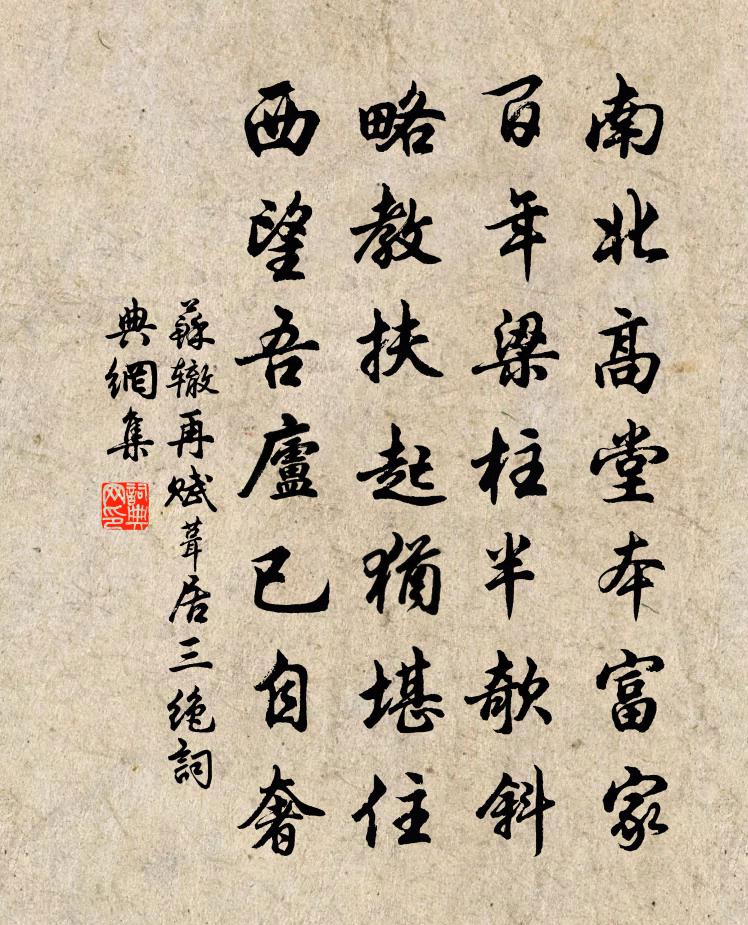 南北高堂本富家
百年梁柱半欹斜
略教扶起猶堪住
西望吾廬已自奢
蘇辙再赋葺居三绝詞
典網集
詞典网印